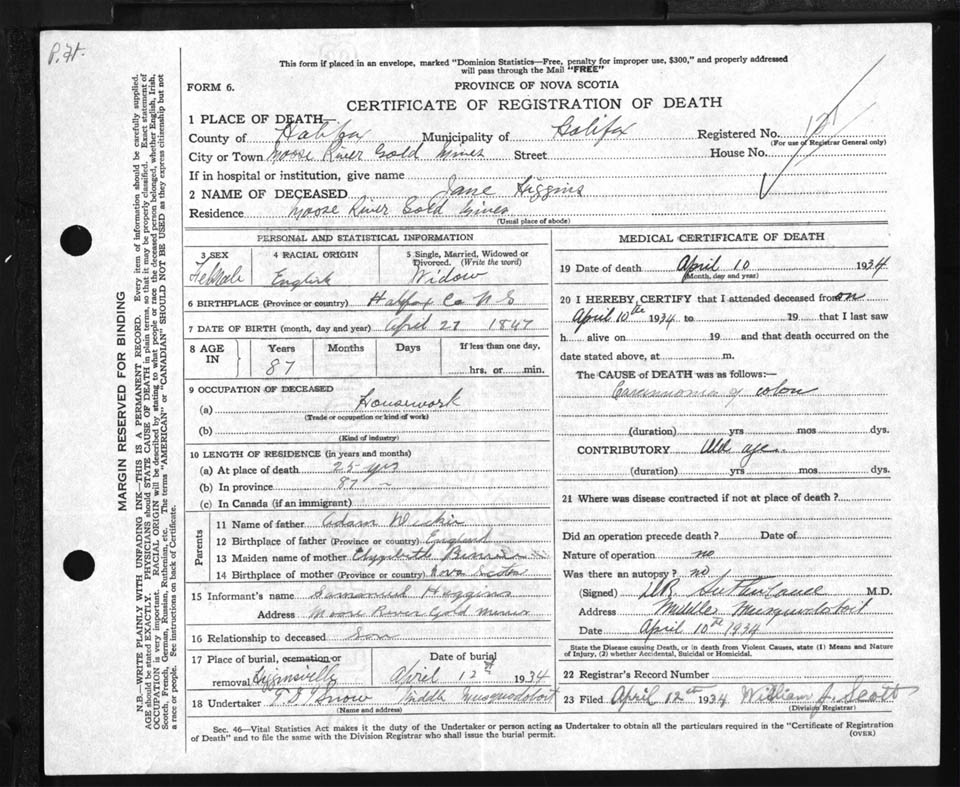 P. Ft.
This form if placed in an envelope, marked "Dominion Statistics—Free, penalty for improper use, $300," and properly addressed
will pass through the Mail "FREE"
FORM 6.
PROVINCE OF NOVA SCOTIA
CERTIFICATE OF REGISTRATION OF DEATH
1 PLACE OF DEATH—
County of Halifax Municipality of Halifax Registered No.
(For use of Registrar General only)
City or Town Moose River Gold Mines Street House No.
If in hospital or institution, give name
2 NAME OF DECEASED Jane Higgins
Residence Moose River Gold Mines
(Usual place of abode)
PERSONAL AND STATISTICAL INFORMATION
3 SEX Female
4 RACIAL ORIGIN English
5 Single, Married, Widowed or Divorced. (Write the word) Widow
6 BIRTHPLACE (Province or country) Halfax Co N S
7 DATE OF BIRTH (month, day and year) April 27 1847
8 AGE IN Years Months Days If less than one day,
87 hrs. or min.
9 OCCUPATION OF DECEASED
(a) Housework
(Trade or occupation or kind of work)
(b)
(Kind of industry)
10 LENGTH OF RESIDENCE (in years and months)
(a) At place of death 25 yrs
(b) In province 87 —
(c) In Canada (if an immigrant)
Parents
11 Name of father Adam
12 Birthplace of father (Province or country) England
13 Maiden name of mother
14 Birthplace of mother (Province or country) Nova Scotia
15 Informant's name Samanuel Higgins
Address Moose River Gold Mines
16 Relationship to deceased Son
17 Place of burial, cremation or removal Date of burial
April 12th 1934
18 Undertaker Snow Middle Musquodoboit
(Name and address)
MEDICAL CERTIFICATE OF DEATH
19 Date of death April 10 1934
(Month, day and year)
20 I HEREBY CERTIFY that I attended deceased from on
April 10th 1934 to 19 that I last saw
h alive on 19 and that death occurred on the
date stated above, at m.
The CAUSE of DEATH was as follows:—
Carcinoma of colon
(duration) yrs mos dys.
CONTRIBUTORY Old age
(duration) yrs mos dys.
21 Where was disease contracted if not at place of death?
Did an operation precede death? Date of
Nature of operation no
Was there an autopsy? no
(Signed) D.R. Sutherland M.D.
Address Middle Musquodoboit
Date April 10th 1934
State the Disease causing Death, or in death from Violent Causes, state (1) Means and Nature
of Injury, (2) whether Accidental, Suicidal or Homicidal.
22 Registrar's Record Number
23 Filed April 12th 1934 William J. Scott
(Division Registrar)
Sec. 46—Vital Statistics Act makes it the duty of the Undertaker or person acting as Undertaker to obtain all the particulars required in the "Certificate of Registration
of Death" and to file the same with the Division Registrar who shall issue the burial permit.
(OVER)
MARGIN RESERVED FOR BINDING
N.B.—WRITE PLAINLY WITH UNFADING INK—THIS IS A PERMANENT RECORD. Every item of information should be carefully supplied.
AGE should be stated EXACTLY. PHYSICIANS should STATE CAUSE OF DEATH in plain terms, so that it may be properly classified. Exact statement of
OCCUPATION is very important. RACIAL ORIGIN will be described by stating to what people or race the deceased person belonged, whether English, Irish,
Scotch, French, German, Russian, Ruthenian, etc. The terms "AMERICAN" or "CANADIAN" SHOULD NOT BE USED as they express citizenship but not
a race or people. See instructions on back of Certificate.